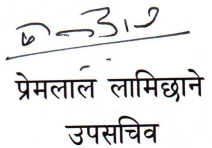 प्रेमलाल लामिछाने
उपसचिव